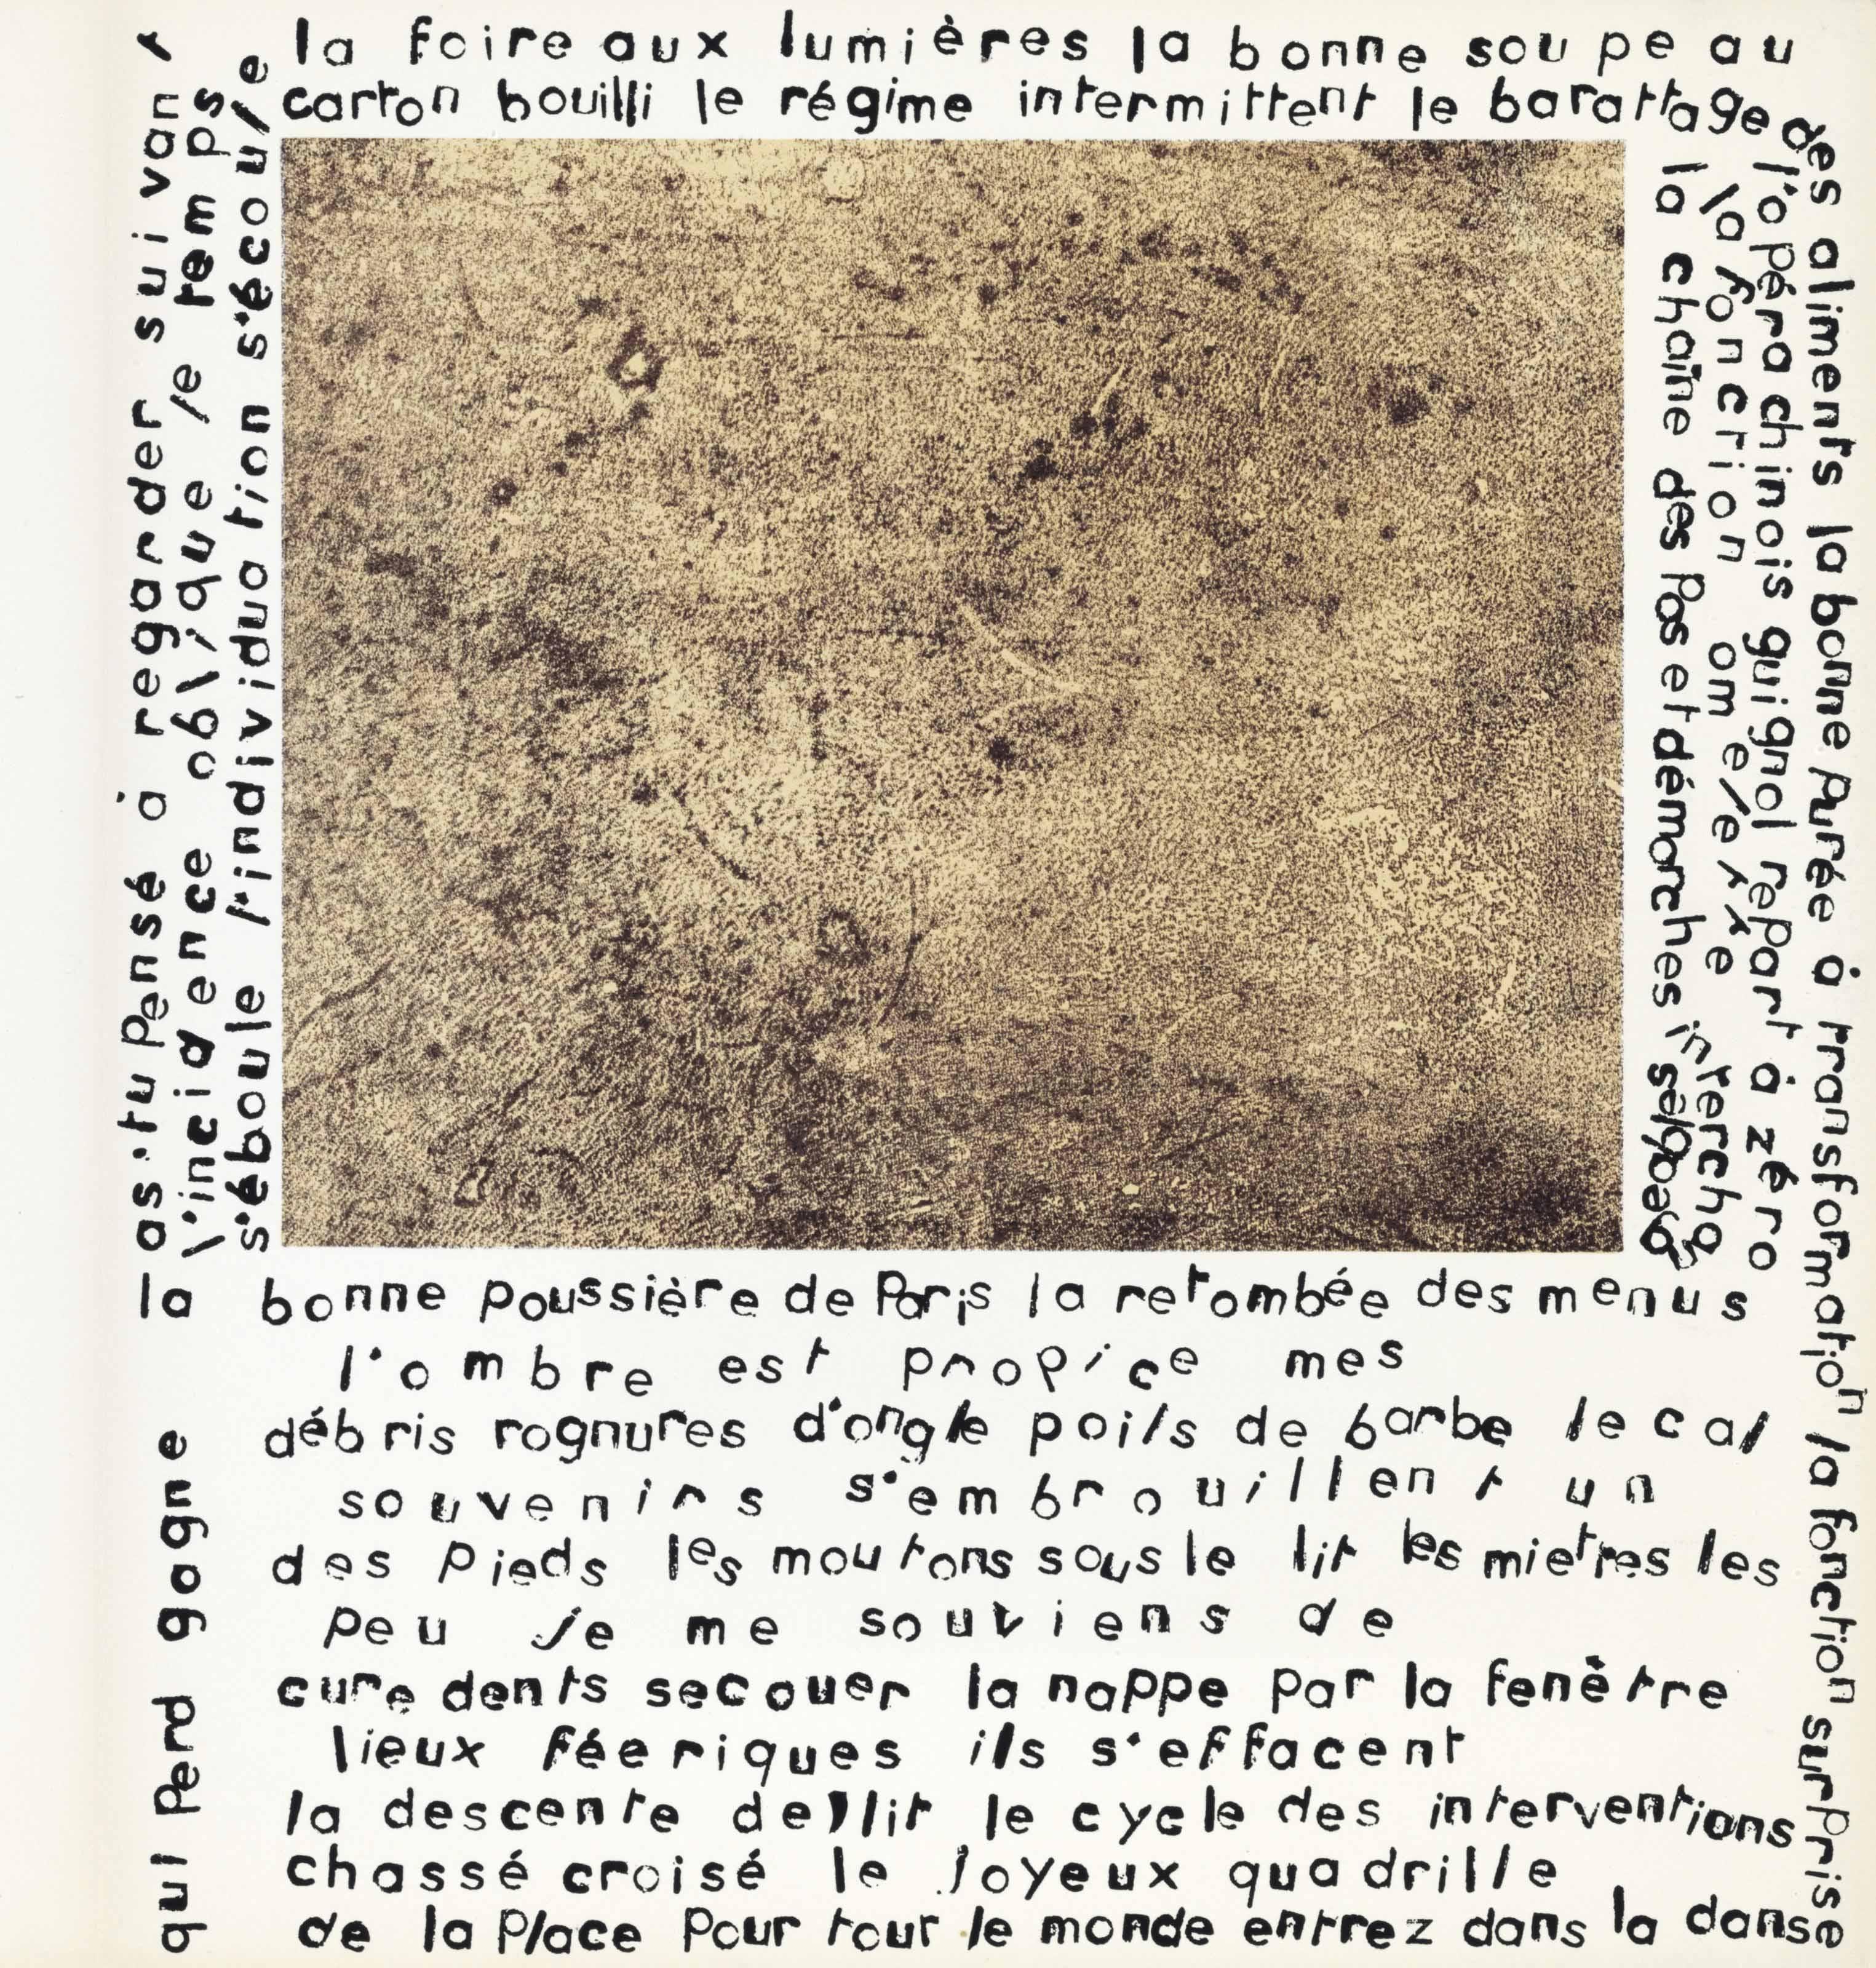 la foire aux lumières la bonne soupe au
carton bouilli le régime intermittent le barattage
des aliments la bonne purée à transformation la fonction surprise
l'opéra chinois guignol repart à zéro
la fonction omelette
la chaîne des pas et démarches interchg
as-tu pensé à regarder suivant
l'incidence oblique le temps
s'éboule l'individuation s'écoule
la bonne poussière de Paris la retombée des menus
l'ombre est propice mes
débris rognures d'ongle poils de barbe le cal
souvenirs s'embrouillent un
des pieds les moutons sous le lit les miettes les
peu je me souviens de
cure dents secouer la nappe par la fenêtre
lieux féeriques ils s'effacent
la descente de lit le cycle des interventions
chassé croisé le joyeux quadrille
de la place pour tout le monde entrez dans la danse
qui perd gagne